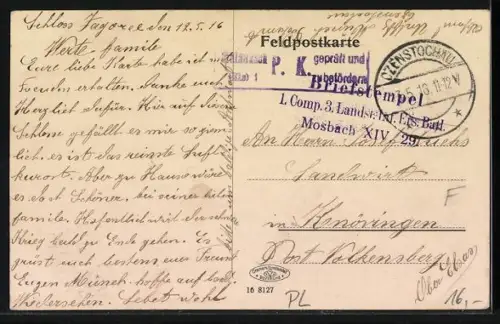 Schloss Zagorze den 12.5.16
Werte Familie
Eure liebe Karte habe ich mit
Freuden erhalten. Danke euch
Herzlich dafür. Hier auf dem
Schlosse gefällt es mir so ziem-
lich, es ist das reinste Luft-
kurort. Aber zu Hause wäre
es doch Schöner, bei seiner lieben
familie. Hoffentlich wird der schöne
Krieg bald zu Ende gehen. Es
grüsst euch bestens euer Freund
Eugen Münch hoffe auf bald.
Wiedersehen. Lebet wohl
Feldpostkarte
P. K.
geprüft und
zu befördern
CZENSTOCHAU
5.16. 11-12 V
Briefstempel
1. Comp. 3. Landst. Inf. Ers. Batl.
Mosbach XIV 29.
An Herrn Josef Fuchs
Landwirt
in Knöringen
Post Volkensberg
Ober Elsass
F
16 8127
PL
16,-